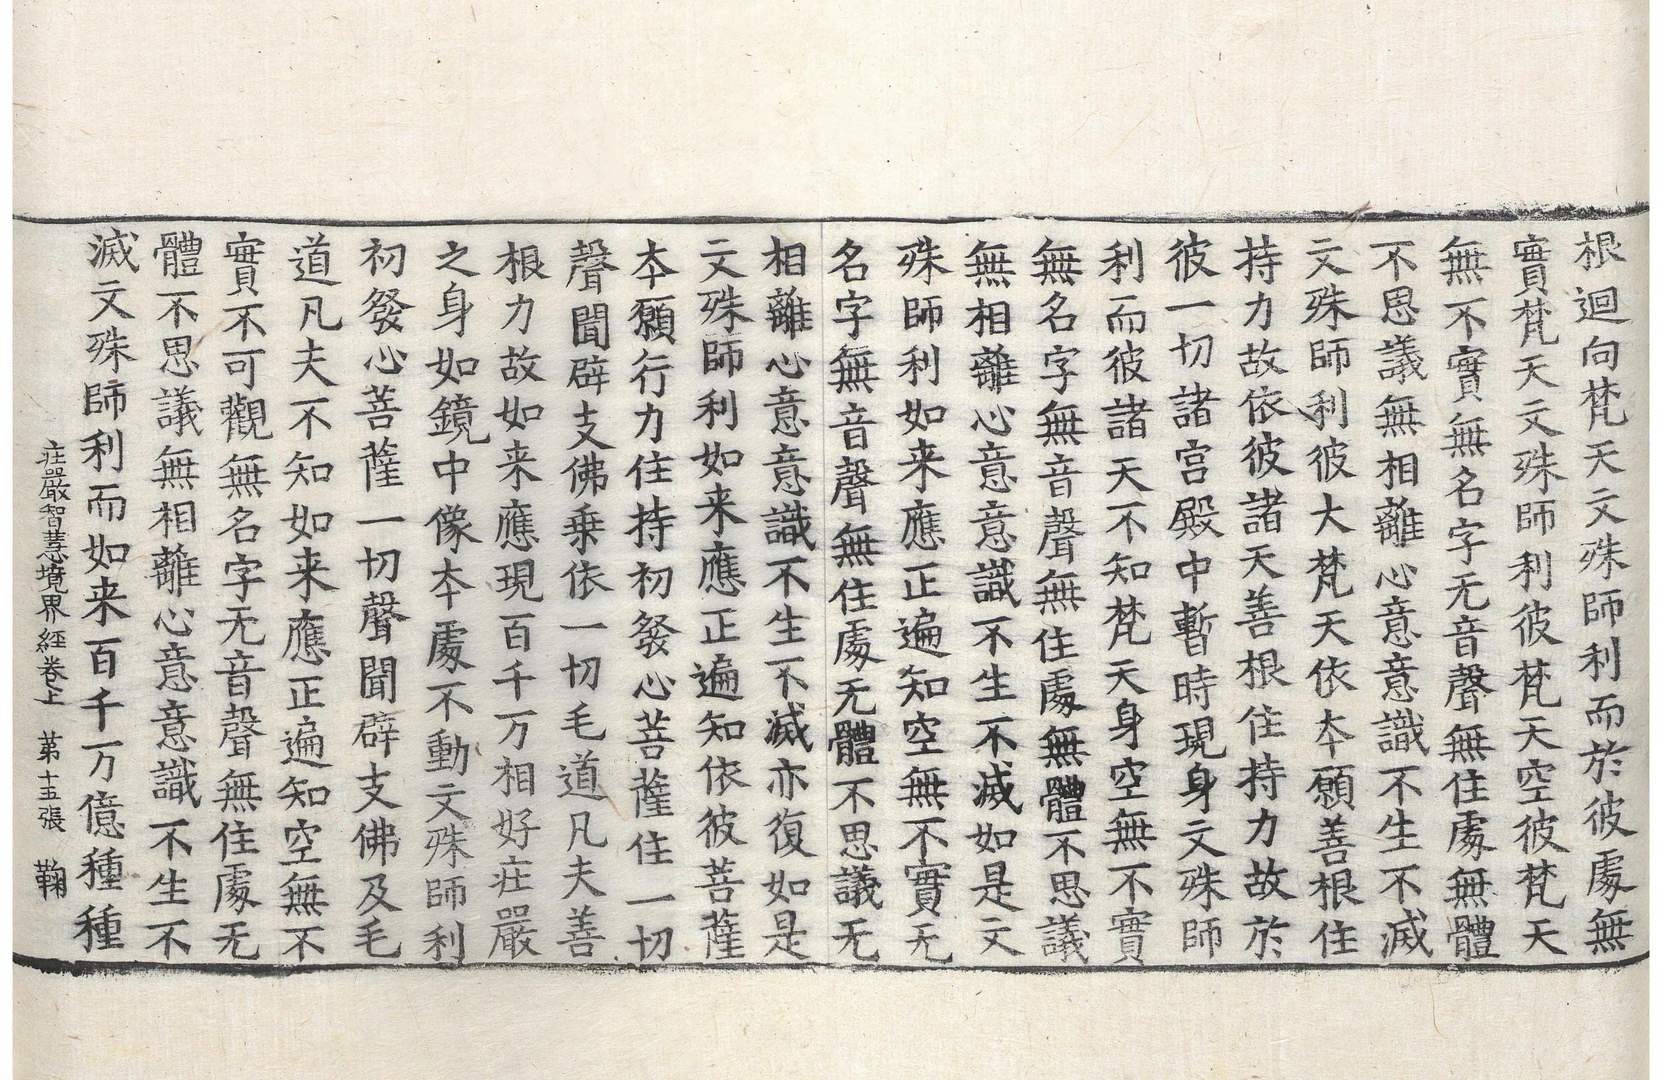 根迴向梵天文殊師利而於彼處無
實梵天文殊師利彼梵天空彼梵天
無不實無名字无音聲無住處無體
不思議無相離心意意識不生不滅
文殊師利彼大梵天依夲願善根住
持力故依彼諸天善根住持力故於
彼一切諸宫殿中暫時現身文殊師
利而彼諸天不知梵天身空無不實
無名字無音聲無住處無體不思議
無相離心意意識不生不滅如是文
殊師利如来應正遍知空無不實无
名字無音聲無住處无體不思議无
相離心意意識不生不滅亦復如是
文殊師利如来應正遍知依彼菩薩
夲願行力住持初發心菩薩住一切
聲聞辟支佛乗依一切毛道凡夫善
根力故如来應現百千万相好庄嚴
之身如鏡中像夲處不動文殊師利
初發心菩薩一切聲聞辟支佛及毛
道凡夫不知如来應正遍知空無不
實不可觀無名字无音聲無住處无
體不思議無相離心意意識不生不
滅文殊師利而如来百千万億種種
庄嚴智慧境界經卷上 苐十五張 鞠